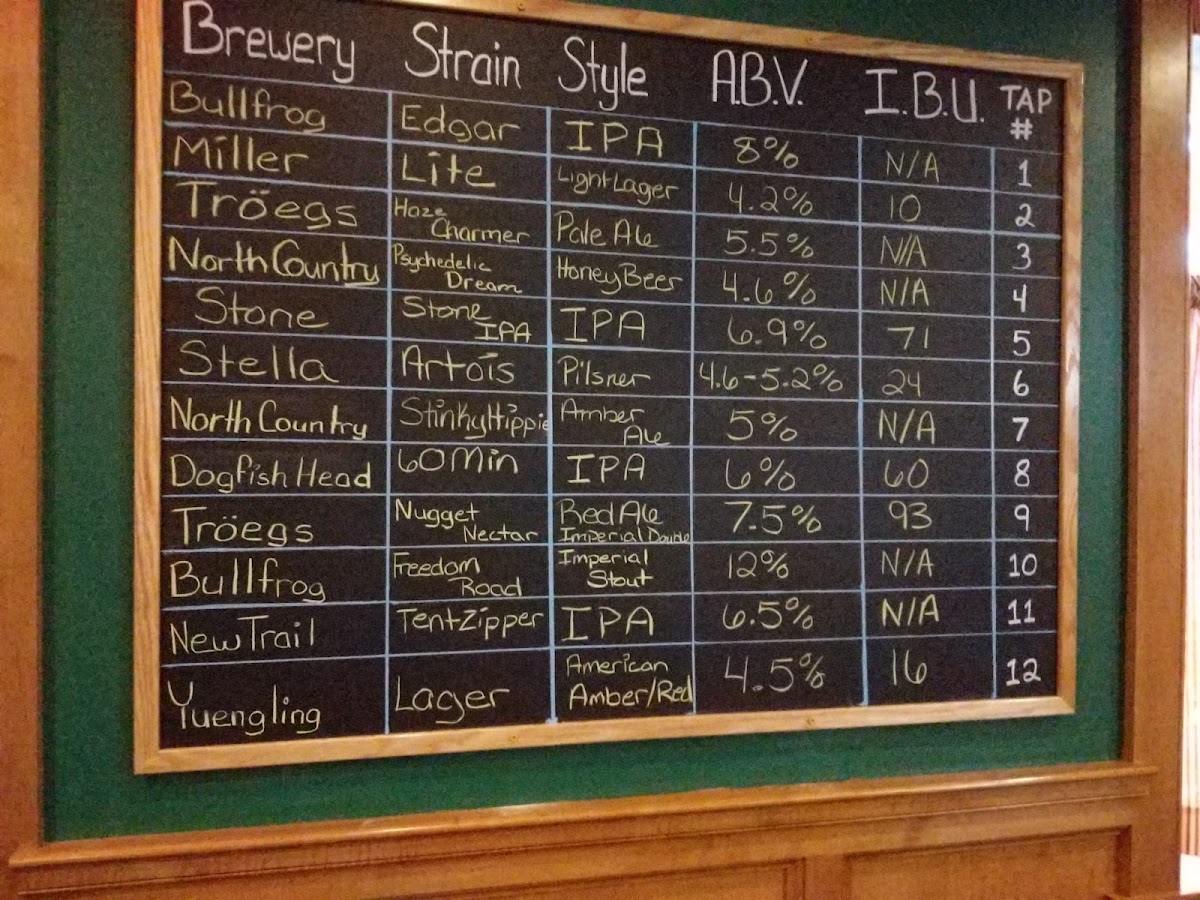 Brewery Strain Style A.B.V. I.B.U. TAP #
Bullfrog Edgar IPA 8% N/A 1
Miller Lite Light Lager 4.2% 10 2
Tröegs Haze Charmer Pale Ale 5.5% N/A 3
North Country Psychedelic Dream Honey Beer 4.6% N/A 4
Stone Stone IPA IPA 6.9% 71 5
Stella Artois Pilsner 4.6-5.2% 24 6
North Country Stinky Hippie Amber Ale 5% N/A 7
Dogfish Head 60 Min IPA 6% 60 8
Tröegs Nugget Nectar Red Ale Imperial Double 7.5% 93 9
Bullfrog Freedom Road Imperial Stout 12% N/A 10
New Trail Tent Zipper IPA 6.5% N/A 11
Yuengling Lager American Amber/Red 4.5% 16 12